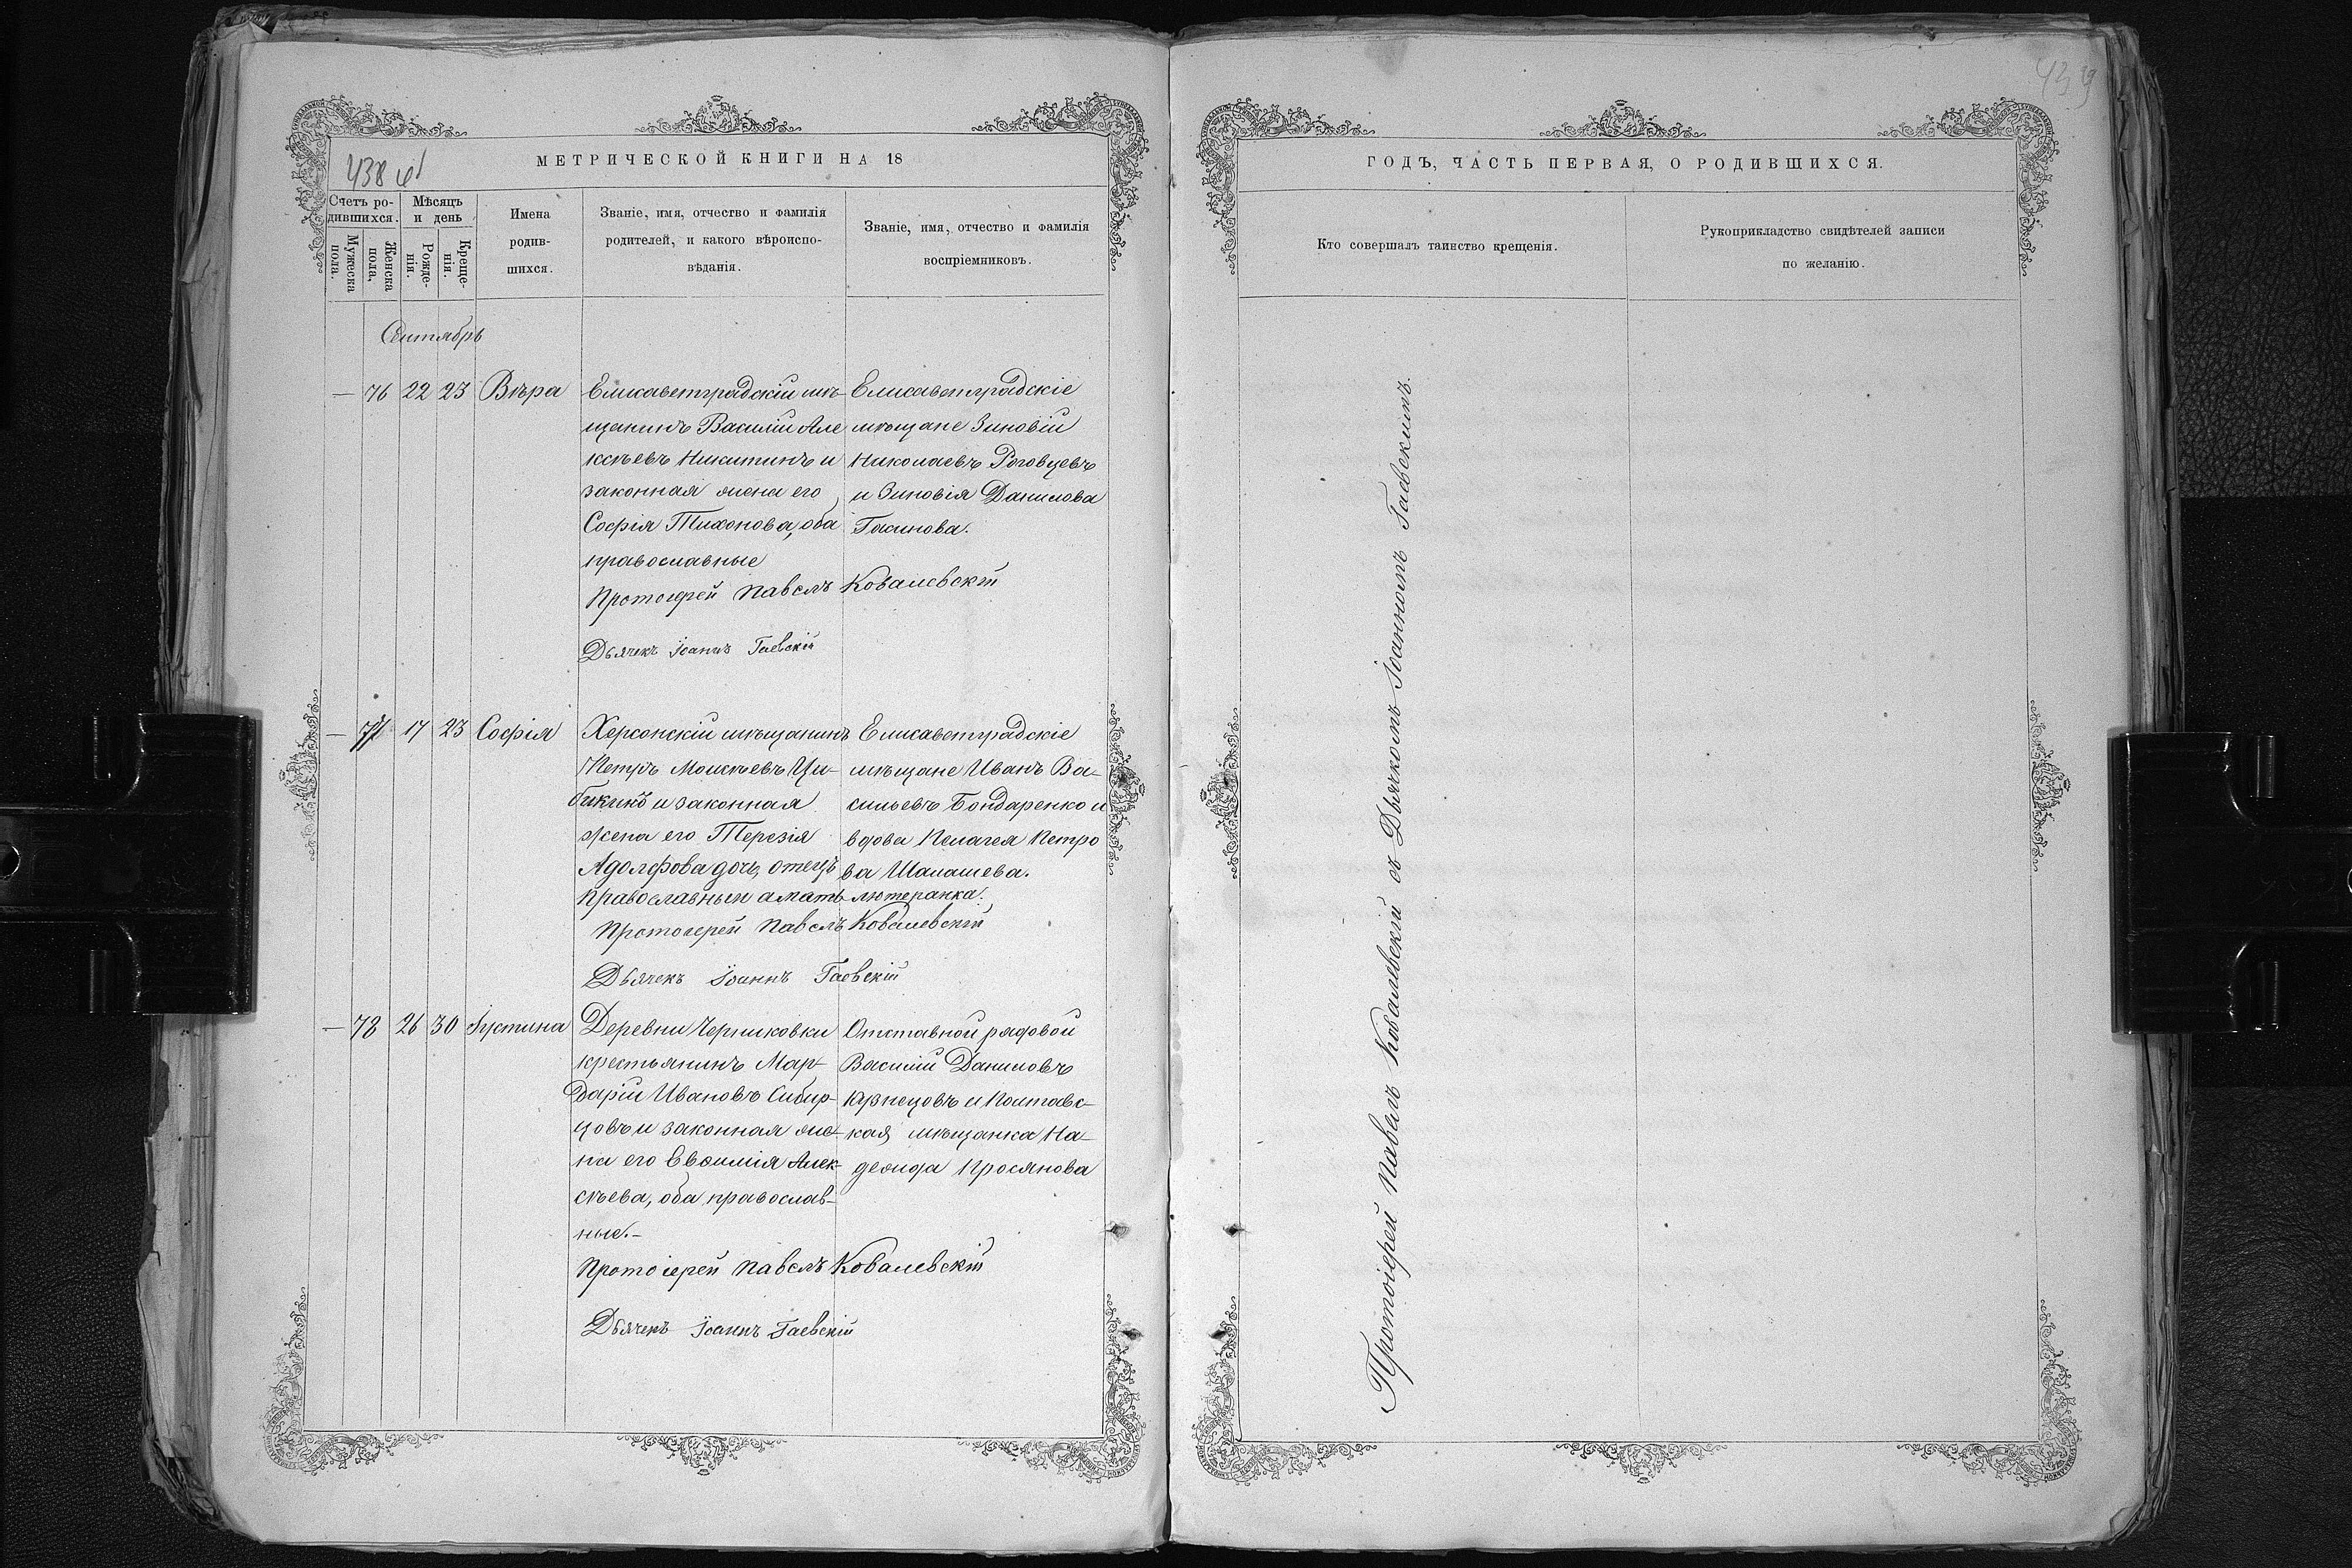 438
МЕТРИЧЕСКОЙ КНИГИ НА 18
Счетъ ро-
дившихся.
Мужеска
пола.
Женска
пола.
Мѣсяцъ
и день
Рожде-
нія.
Креще-
нія.
Имена
родив-
шихся.
Званіе, имя, отчество и фамилія
родителей, и какого вѣроиспо-
вѣданія.
Званіе, имя, отчество и фамилія
воспріемниковъ.
Сентябрь
— 76 22 23 Вѣра
Елисаветградскій мѣ-
щанинъ Василій Але
ксѣевъ Никитинъ и
законная жена его
Софія Тихонова, оба
православные
Елисаветградскіе
мѣщане Зиновій
Николаевъ Роговцевъ
и Зиновія Данилова
Протоіерей Павелъ Ковалевскій
Дьячекъ Іоаннъ Гаевскій
— 77 17 23 Софія
Херсонскій мѣщанинъ
Петръ Моисѣевъ Ци-
бикинъ и законная
жена его Терезія
Адолфова дочь, отецъ
православный а мать лютеранка.
Елисаветградскіе
мѣщане Иванъ Ва-
сильевъ Бондаренко и
вдова Пелагея Петро
ва Шалашева.
Протоіерей Павелъ Ковалевскій
Дьячекъ Іоаннъ Гаевскій
— 78 26 30 Іустина
Деревни Черниковки
крестьянинъ Мар-
дарій Ивановъ Сибир-
цовъ и законная же-
на его Евѳимія Алек-
сѣева, оба православ-
ные.-
Отставной рядовой
Василій Даниловъ
Кузнецовъ и Полтавс-
кая мѣщанка На-
дежда Просянова
Протоіерей Павелъ Ковалевскій
Дьячекъ Іоаннъ Гаевскій
439
ГОДЪ, ЧАСТЬ ПЕРВАЯ, О РОДИВШИХСЯ.
Кто совершалъ таинство крещенія.
Рукоприкладство свидѣтелей записи
по желанію.
Протоіерей Павелъ Ковалевскій съ Дьячкомъ Іоанномъ Гаевскимъ.